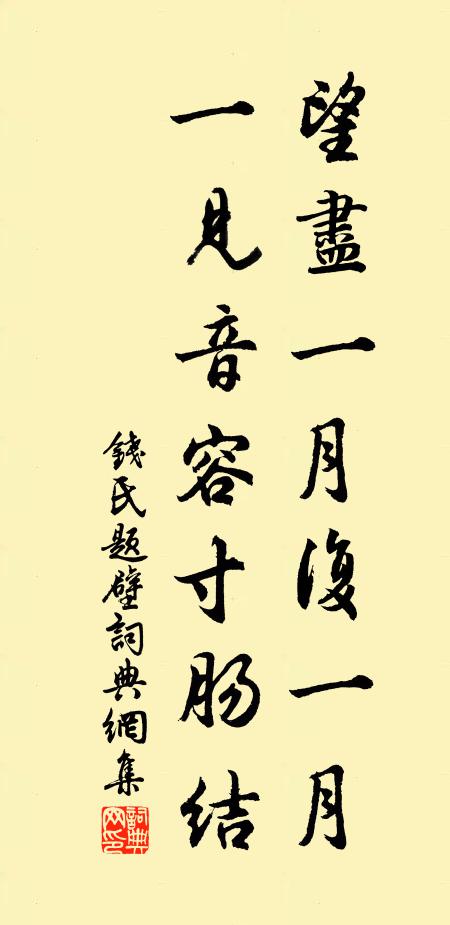 望盡一月復一月
一見音容寸肠結
錢氏题壁詞典網集
詞典
网印